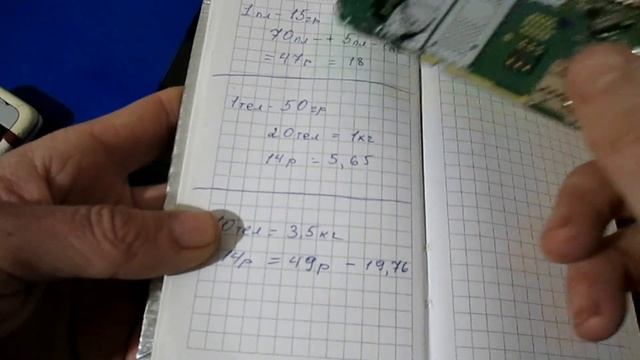 1пл - 15=р
70пл - + 5пл -
= 47р = 18
1тел - 50=р
20тел = 1кг
14р = 5,65
10тел = 3,5кг
14р = 49р - 19,76